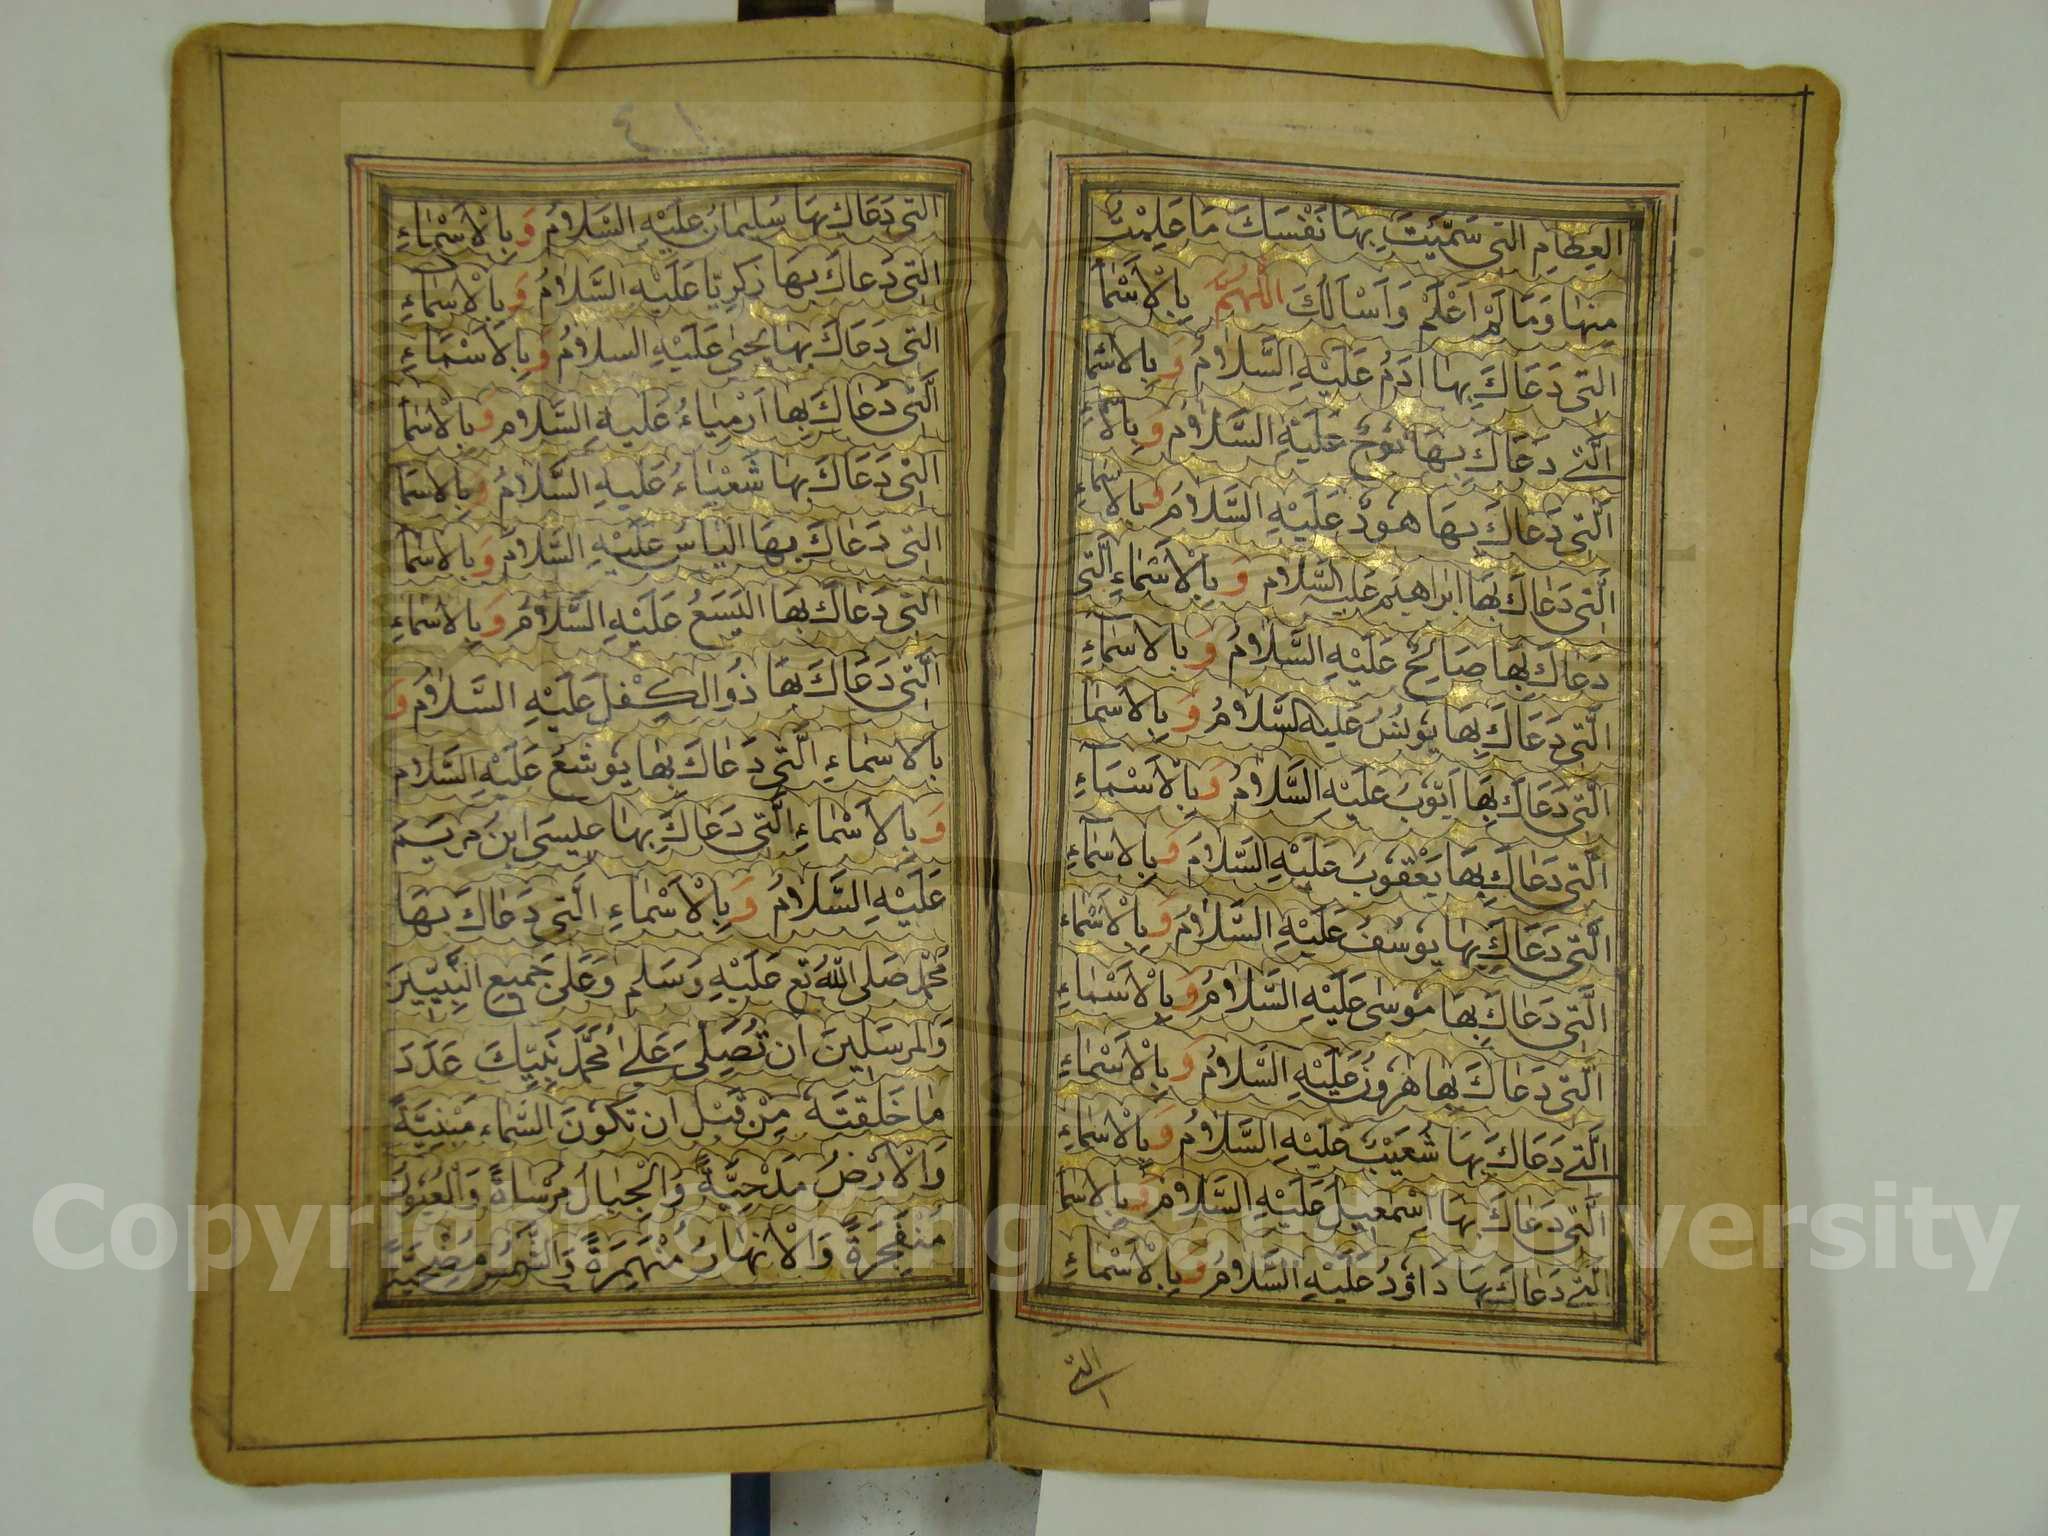 العِظامِ التى سَمَّيْتَ بِهَا نَفْسَكَ مَا عَلِمْتُ
مِنهَا وَمَا لَمْ اَعْلَمْ وَاَسْاَلُكَ اللّٰهُمَّ بِالْاَسْمَآ
التّى دَعَاكَ بِهَا ادَمُ عَلَيْهِ السَّلَامُ وَبِالاسْمَا
الَّتى دَعَاكَ بِهَا نوُحٌ عَلَيْهِ السَّلَامُ وَبِالاَسْمَاءِ
الَّتى دَعَاكَ بِهَا هوُدٌ عَلَيْهِ السَّلَامُ وَبِالاسْمَاءِ
الَّتى دَعَاكَ بِهَا ابراهيم عَليهِ السَّلَام وَبِالْاَسْمَاءِ الَّتى
دَعَاكَ بِهَا صَالِحٌ عَلَيْهِ السَّلَامُ وَبِالاسْمَآءِ
الَّتى دَعَاكَ بِهَا يوُنُسُ عَليهِ السَّلَامُ وَبِالاَسْمَا
الَّتى دَعَاكَ بِهَا اَيّوُبَ عَلَيْهِ السَّلَامُ وَبِالْاَسْمَاءِ
الَّتى دَعَاكَ بِهَا يَعْقوُبَ عَلَيْهِ السَّلَامُ وَبِالاسْمَآءِ
الَّتى دَعَاكَ بِهَا يوُسُفُ عَلَيْهِ السَّلَامُ وَبِالْاَسْمَاءِ
الَّتى دَعَاكَ بِهَا موُسٰى عَلَيْهِ السَّلَامُ وَبِالْاَسْمَاءِ
الَّتى دَعَاكَ بِهَا هٰروُنُ عَلَيْهِ السَّلَامُ وَبِالْاَسْمَاءِ
الَّتى دَعَاكَ بِهَا شُعَيْبٌ عَلَيْهِ السَّلَامُ وَبِالْاسْمَاءِ
الَّتى دَعَاكَ بِهَا اِسْمٰعيلَ عَلَيْهِ السَّلَامُ وَبِالاسْمَا
الَّتى دَعَاكَ بِهَا دَاوُدُ عَلَيْهِ السَّلَامُ وَبِالْاَسْمَاءِ
التى
٤١
التّى دَعَاكَ بِهَا سُليمَانُ عَلَيْهِ السَّلَامُ وَبِالْاَسْمَاءِ
التّى دَعَاكَ بِهَا زَكَرِيّا عَلَيْهِ السَّلَامُ وَبِالْاَسْمَاءِ
التّى دَعَاكَ بِهَا يحيٰى عَلَيْهِ السلَامُ وَبِالاَسْمَاءِ
الَّتى دَعَاكَ بِهَا اَرْمِيَاءُ عَلَيهِ السَّلَام وَبِالْاسْمَآ
التّى دَعَاكَ بِهَا شَعْيَاءُ عَلَيهِ السَّلَامُ وَبِالاسْمَا
التّى دَعَاكَ بِهَا اليَاسُ عَلَيْهِ السَّلَامُ وَبِالاسْمَآ
التّى دَعَاكَ بِهَا اليَسَعُ عَلَيْهِ السَّلَامُ وَبِالاسْمَاءِ
الَّتى دَعَاكَ بِهَا ذوُ الكِفْلِ عَلَيْهِ السَّلَامُ وَ
بِالاسْمَاءِ الَّتى دَعَاكَ بِهَا يوُشَعُ عَلَيْهِ السَّلَام
وَبِالاَسْمَاءِ الَّتى دَعَاكَ بِهَا عيسَى ابنُ مريَمَ
عَلَيْهِ السَّلَامُ وَبِالْاَسْمَاءِ الَّتى دَعَاكَ بِهَا
مُحمّد صَلى اللهُ تع عَلَيْهِ وَسَلم وَعَلى جَميعِ النَّبِيّينَ
وَالمرسَلينَ ان تُصَلِىَ عَلٰى مُحَمَّدٍ نَبِيِّكَ عَدَدَ
مَا خَلَقتَهُ مِنْ قَبْلِ ان تَكوُنَ السَّمَاء مَبْنِيَّةً
وَالْاَرْضُ مَدْحِيَّةً وَالْجِبَالُ مُرْسَاةً وَالْعُيوُنُ
مُنْفَجِرَةً وَالْانهَارُ مُنْهَمِرَةً وَالشَّمْسُ مُضْحِيَةً
Copyright © King Saud University